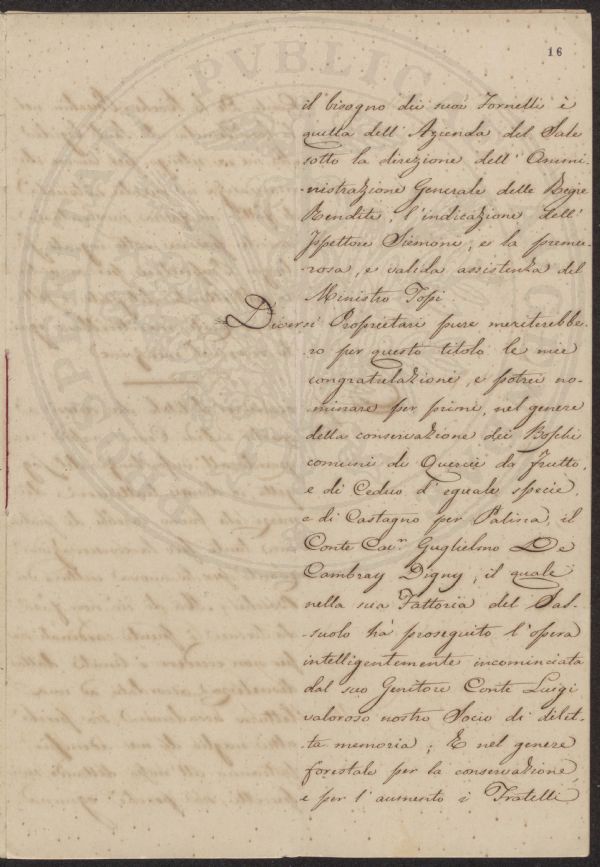 16
il bisogno dei suoi Fornelli è
quella dell' Azienda del Sale
sotto la direzione dell' Ammi-
-nistrazione Generale delle Regie
Rendite, l' indicazione dell'
Ispettore Siemone, e la preme-
-rosa, e valida assistenza del
Ministro Topi.
Diversi Proprietari pure meriterebbe-
-ro per questo titolo le mie
congratulazioni, e potrei no-
-minare per primi, nel genere
della conservazione dei Boschi
comuni di Querce da frutto,
e di Ceduo d' eguale specie,
e di Castagno per Palina, il
Conte Cav.r Guglielmo De
Cambray Digny, il quale
nella sua Fattoria del Sas-
-suolo hà proseguito l' opera
intelligentemente incominciata
dal suo Genitore Conte Luigi
valoroso nostro Socio di dilet-
-ta memoria; E nel genere
forestale per la conservazione,
e per l' aumento i Fratelli